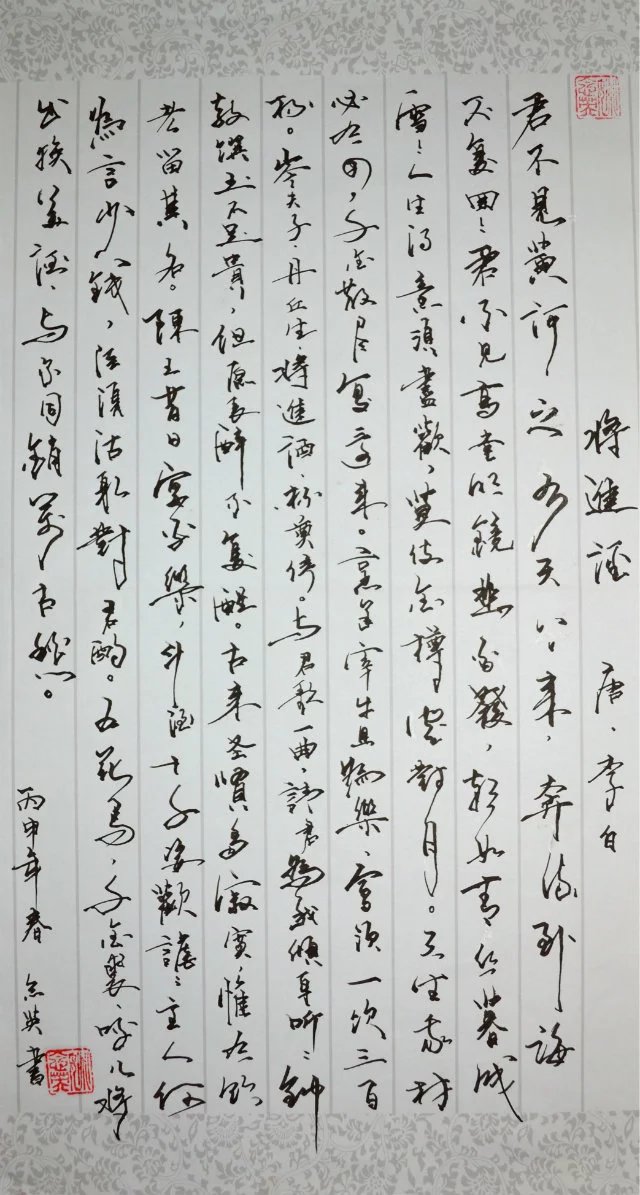 將進酒 唐·李白
君不見黃河之水天上來,奔流到海
不复回,君不見高堂明鏡悲白發,朝如青丝暮成
雪,人生得意須盡歡,莫使金樽空對月。天生我材
必有用,千金散尽還復來。烹羊宰牛且為樂,會須一饮三百
杯。岑夫子,丹丘生,將進酒,杯莫停。与君歌一曲,請君為我傾耳听,鐘
鼓饌玉不足貴,但愿長醉不复醒。古來圣賢多寂寞,惟有飲
者留其名。陳王昔日宴平樂,斗酒十千恣歡謔,主人何
為言少錢,径須沽取對君酌。五花馬,千金裘,呼儿將
出換美酒,与尔同銷萬古愁。
丙申年春 英書